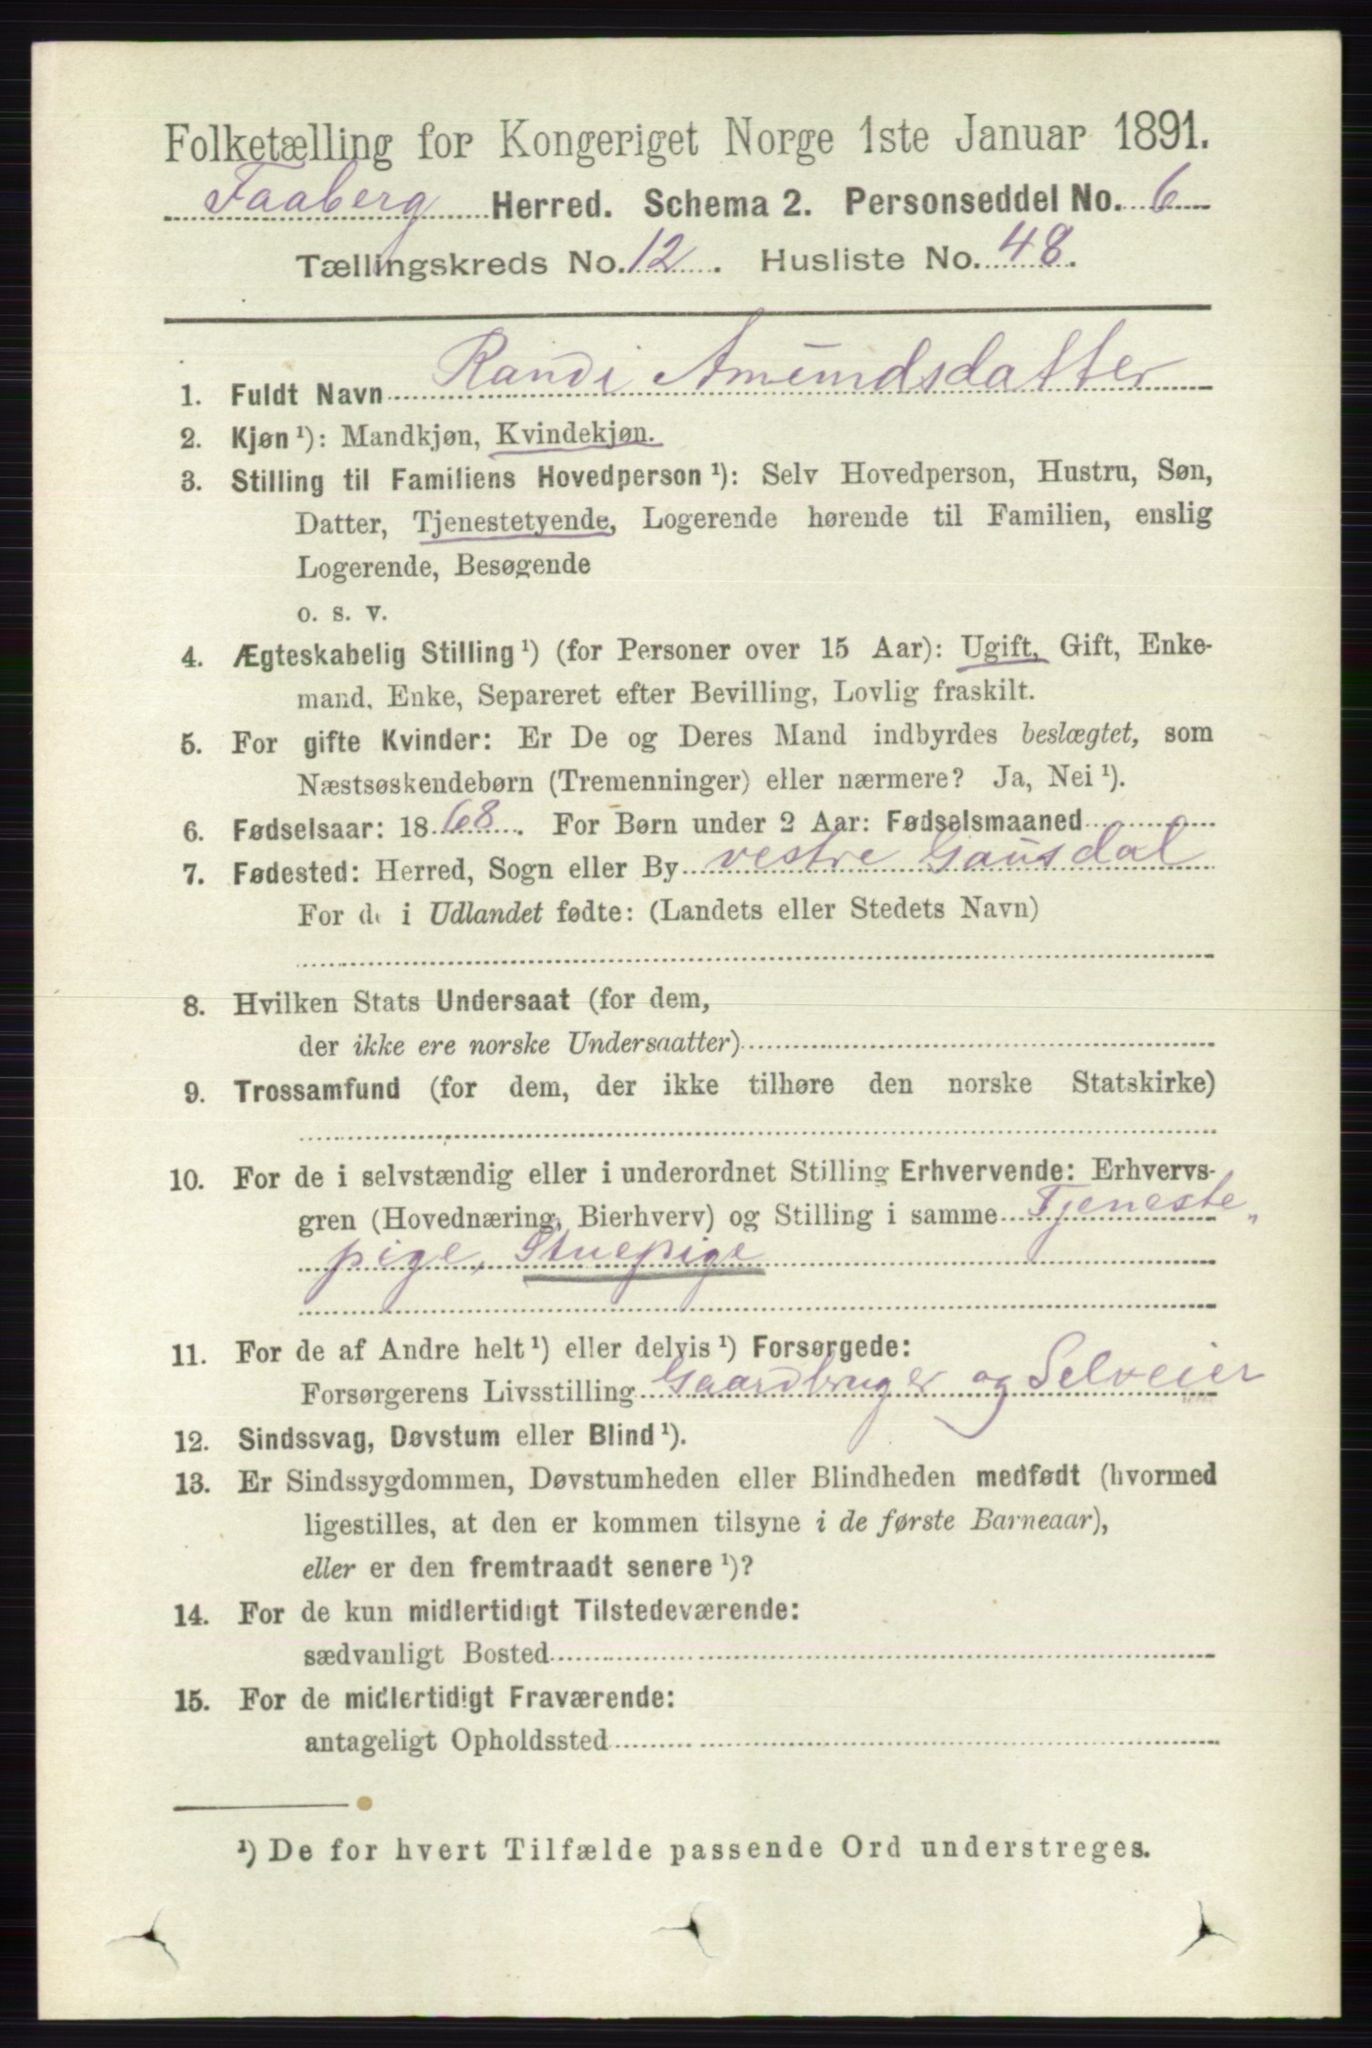 Folketælling for Kongeriget Norge 1ste Januar 1891.
Faaberg Herred. Schema 2. Personseddel No. 6
Tællingskreds No. 12. Husliste No. 48.
1. Fuldt Navn Randi Amundsdatter
2. Kjøn ¹): Mandkjøn, Kvindekjøn.
3. Stilling til Familiens Hovedperson ¹): Selv Hovedperson, Hustru, Søn,
Datter, Tjenestetyende, Logerende hørende til Familien, enslig
Logerende, Besøgende
o. s. v.
4. Ægteskabelig Stilling ¹) (for Personer over 15 Aar): Ugift, Gift, Enke-
mand, Enke, Separeret efter Bevilling, Lovlig fraskilt.
5. For gifte Kvinder: Er De og Deres Mand indbyrdes beslægtet, som
Næstsøskendebørn (Tremenninger) eller nærmere? Ja, Nei ¹).
6. Fødselsaar: 1868. For Børn under 2 Aar: Fødselsmaaned
7. Fødested: Herred, Sogn eller By vestre Gausdal
For de i Udlandet fødte: (Landets eller Stedets Navn)
8. Hvilken Stats Undersaat (for dem,
der ikke ere norske Undersaatter)
9. Trossamfund (for dem, der ikke tilhøre den norske Statskirke)
10. For de i selvstændig eller i underordnet Stilling Erhvervende: Erhvervs-
gren (Hovednæring, Bierhverv) og Stilling i samme Tjeneste„
pige, Stuepige
11. For de af Andre helt ¹) eller delvis ¹) Forsørgede:
Forsørgerens Livsstilling Gaardbruger og Selveier
12. Sindssvag, Døvstum eller Blind ¹).
13. Er Sindssygdommen, Døvstumheden eller Blindheden medfødt (hvormed
ligestilles, at den er kommen tilsyne i de første Barneaar),
eller er den fremtraadt senere ¹)?
14. For de kun midlertidigt Tilstedeværende:
sædvanligt Bosted
15. For de midlertidigt Fraværende:
antageligt Opholdssted
¹) De for hvert Tilfælde passende Ord understreges.